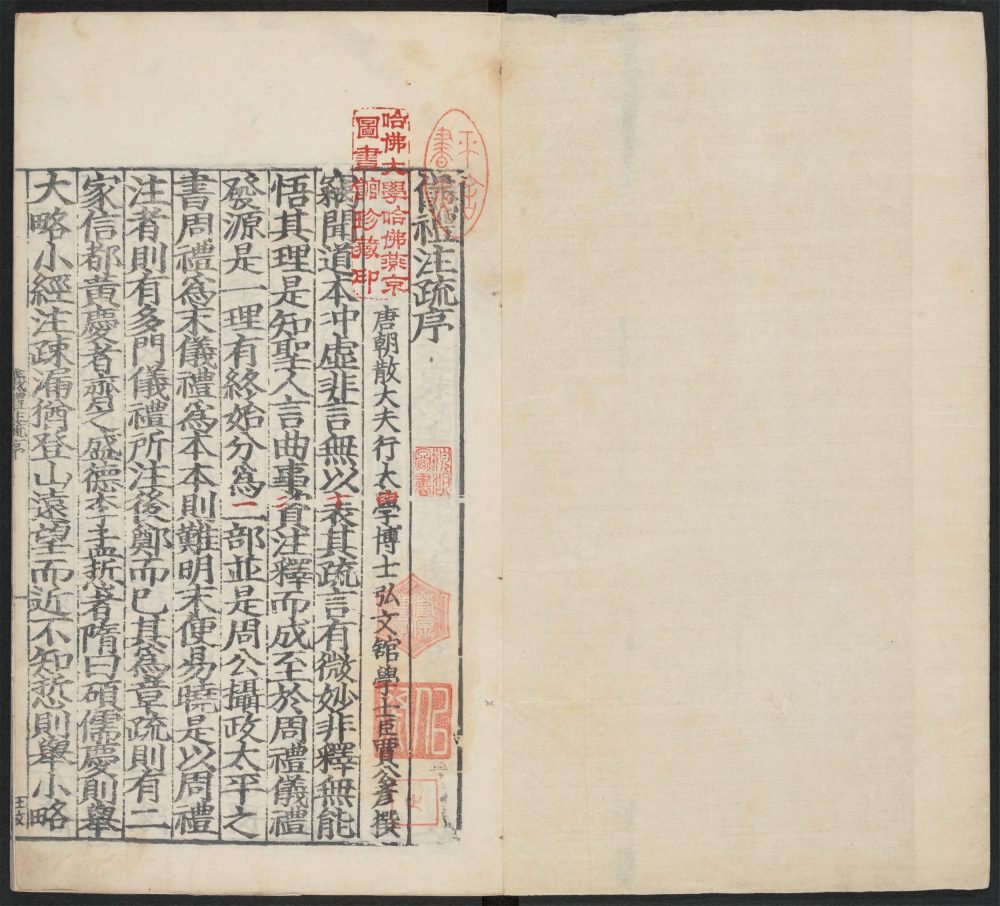 儀禮注疏序
唐朝散大夫行太學博士弘文館學士臣賈公彥撰
竊聞道本冲虛非言無以表其疏言有微妙非釋無能
悟其理是知聖人言曲事資注釋而成至於周禮儀禮
發源是一理有終始分爲二部並是周公攝政太平之
書周禮爲末儀禮爲本本則難明末便易曉是以周禮
注者則有多門儀禮所注後鄭而已其爲章疏則有二
家信都黃慶者齊之盛德李孟悊者隋曰碩儒慶則舉
大略小經注疎漏猶登山遠望而近不知悊則舉小略
儀禮注疏序
一
王文
哈佛大學哈佛燕京
圖書館珍藏印